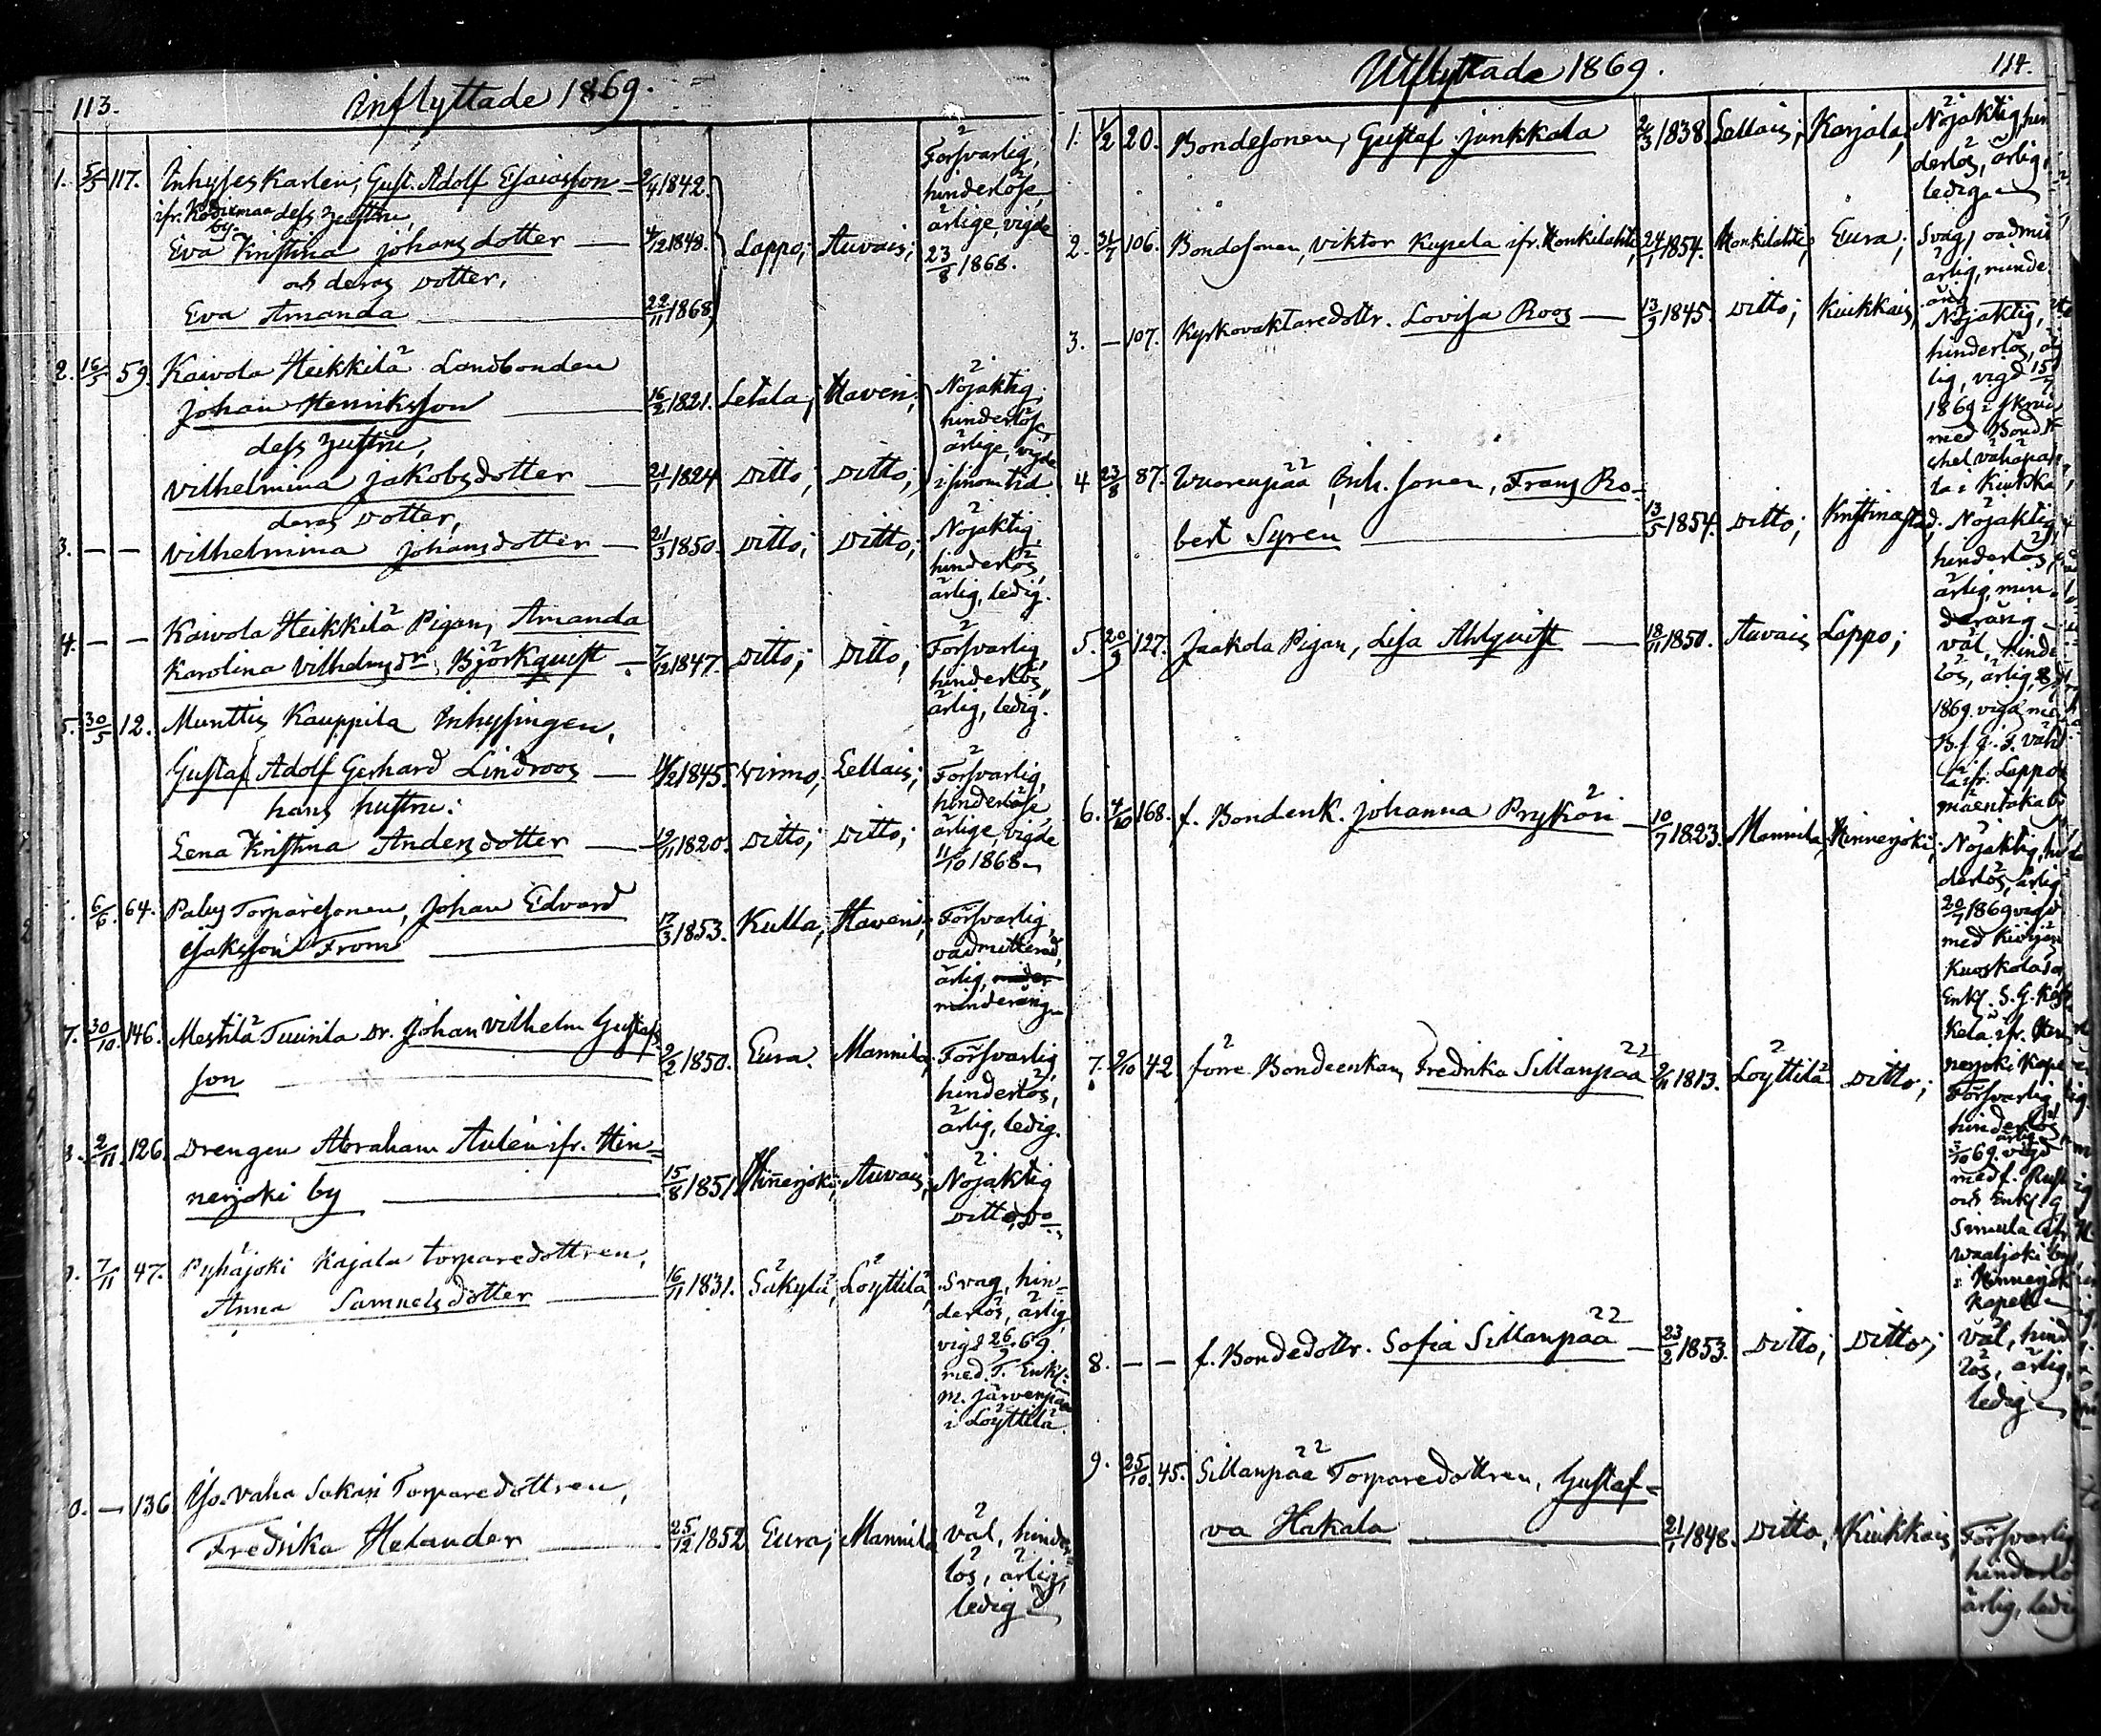 113.
Inflyttade 1869.
1. 5/5 117. Inhyses Karlen, Gust. Adolf Esaiasson 1842.
ifr. Kodixmaa by. dess hustru,
Eva Kristina Johansdotter 4/12 1848. Lappo; Auvais;
och deras dotter,
Eva Amanda 22/11 1868
Försvarlig,
hinderlöse,
ärlige, vigde
23/8 1868.
2. 16/5 59. Kaivola Heikkilä Landbonden
Johan Henriksson 16/2 1821. Letala; Haveri;
dess hustru,
Vilhelmina Jakobsdotter 21/1 1824 Ditto; Ditto;
Nöjaktig,
hinderlöse,
ärlige, vigde
i sinom tid.
deras dotter,
3. — — Vilhelmina Johansdotter 21/3 1850. Ditto; Ditto;
Nöjaktig,
hinderlös,
ärlig, ledig.
4. — — Kaivola Heikkilä Pigan, Amanda
Karolina Vilhelmsdr. Björkquist 7/12 1847. Ditto; Ditto;
Försvarlig,
hinderlös,
ärlig, ledig.
5. 30/5 12. Munttis Kauppila Inhysingen,
Gustaf Adolf Gerhard Lindroos 1845. Virmo; Lellais;
hans hustru:
Lena Kristina Andersdotter 1820. Ditto; Ditto;
Försvarlig,
hinderlöse,
ärlige, vigde
11/10 1868
6/6 64. Palus Torparesonen, Johan Edvard
Isaksson From 17/3 1853. Kulla; Haveri;
Försvarlig,
oadmitterad,
ärlig,
minderårig
7. 30/10 146. Mestilä Tuurila Dr. Johan Vilhelm Gustafs
son 2/2 1850. Eura. Mannila;
Försvarlig,
hinderlös,
ärlig, ledig.
2/11 126 Drengen Abraham Aulén ifr. Hin=
nerjoki by 15/8 1851 Hinnerjoki; Auvais;
Nöjaktig
Ditto, Do
7/11 47. Pyhäjoki Kajala torparedottren,
Anna Samuelsdotter 16/11 1831. Säkylä, Löyttilä,
Svag, hin=
derlös, ärlig,
vigd 26/ 69.
med T. Enkl.
M. Järvenpää
i Löyttilä.
— 136 Yso-vaha Sakari Torparedottren,
Fredrika Helander 25/12 1852 Eura; Mannila
Väl, hinder=
lös, ärlig,
ledig
114.
Utflyttade 1869.
1. 1/2 20. Bondesonen, Gustaf Junkkala 1838. Lellais; Karjala,
Nöjaktig, hin
derlös, ärlig,
ledig
2. 31/7 106. Bondesonen, Viktor Kupela ifr. Honkilahti, 24/1 1854. Honkilahti; Eura;
Svag, oadmit
ärlig, minder
årig
3. — 107. Kyrkovaktaredottr. Lovisa Roos 13/9 1845. Ditto; Kiukkais,
Nöjaktig,
hinderlös, är
lig, vigd
1869
med Bond
ta i Kiukka
4 23/8 87. Wuorenpää Inh. sonen, Frans Ro=
bert Syren 13/5 1854. Ditto; Kristinastad;
Nöjaktig,
hinderlös,
ärlig, min=
derårig
5. 20/9 127. Jaakola Pigan, Lisa Ahlquist 18/11 1850. Auvais Lappo;
Väl, hinder
lös, ärlig,
1869. vigd med
ifr. Lappo
6. 4/10 168. f. Bondenk. Johanna Prykäri 10/7 1823. Mannila, Hinnerjoki;
Nöjaktig, hin
derlös, ärlig
20/7 1869 vigd
med
Enkl. S. G.
kelä, ifr. Hin
nerjoki Kape
7. 2/10 42 förre Bondeenkan, Fredrika Sillanpää 1813. Löyttilä Ditto;
Försvarlig,
hinderlös,
ärlig
3/10 69. vigd
med f.
och Enkl. G
Simula ifr.
Waaljoki by,
i Hinnerjoki
Kapell
8. — — f. Bondedottr. Sofia Sillanpää 23/2 1853. Ditto; Ditto;
Väl, hinder
lös, ärlig,
ledig
9. 25/10 45. Sillanpää Torparedottren, Gustaf=
va Hakala 21/1 1848. Ditto, Kiukkais,
Försvarlig
hinderlö
ärlig, ledig